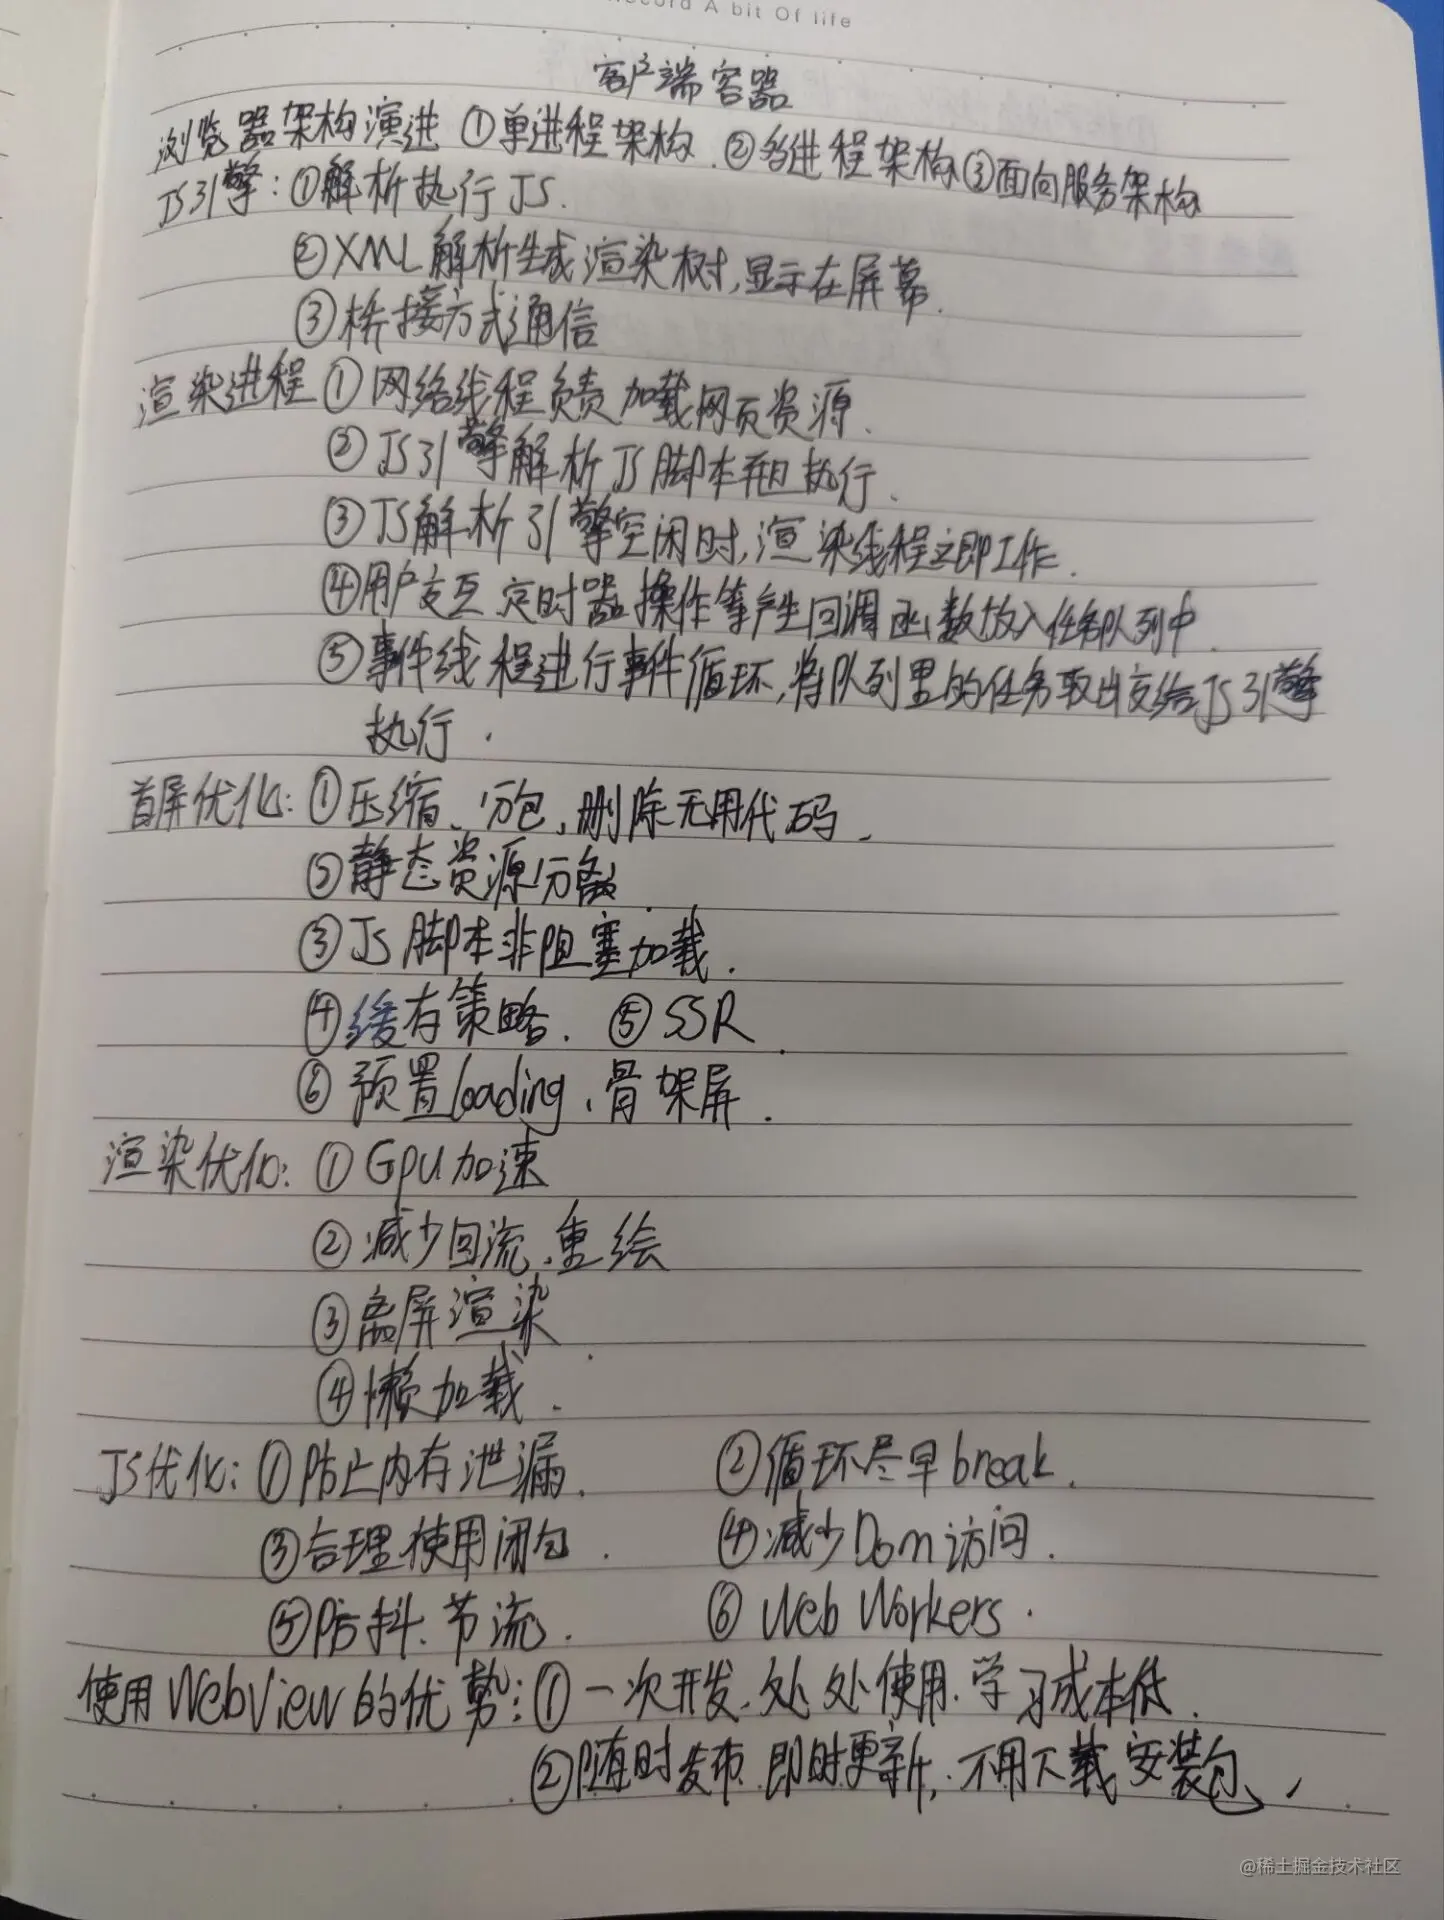 Record A bit Of life
客户端容器
浏览器架构演进 ①单进程架构. ②多进程架构③面向服务架构
JS引擎: ①解析执行JS.
②XML解析生成渲染树,显示在屏幕.
③桥接方式通信
渲染进程①网络线程负责加载网页资源.
②JS引擎解析JS脚本并且执行.
③JS解析引擎空闲时,渲染线程立即工作.
④用户交互 定时器操作等产生回调函数放入任务队列中
⑤事件线程进行事件循环,将队列里的任务取出交给JS引擎
执行.
首屏优化: ①压缩、分包,删除无用代码.
②静态资源分离
③JS脚本非阻塞加载.
④缓存策略. ⑤SSR.
⑥ 预置loading、骨架屏.
渲染优化: ①GPU加速
②减少回流、重绘
③离屏渲染.
④懒加载.
JS优化: ①防止内存泄漏. ②循环尽早break.
③合理使用闭包. ④减少Dom访问.
⑤防抖、节流. ⑥Web Workers.
使用WebView的优势: ①一次开发、处处使用.学习成本低.
②随时发布 即时更新,不用下载安装包、
@稀土掘金技术社区